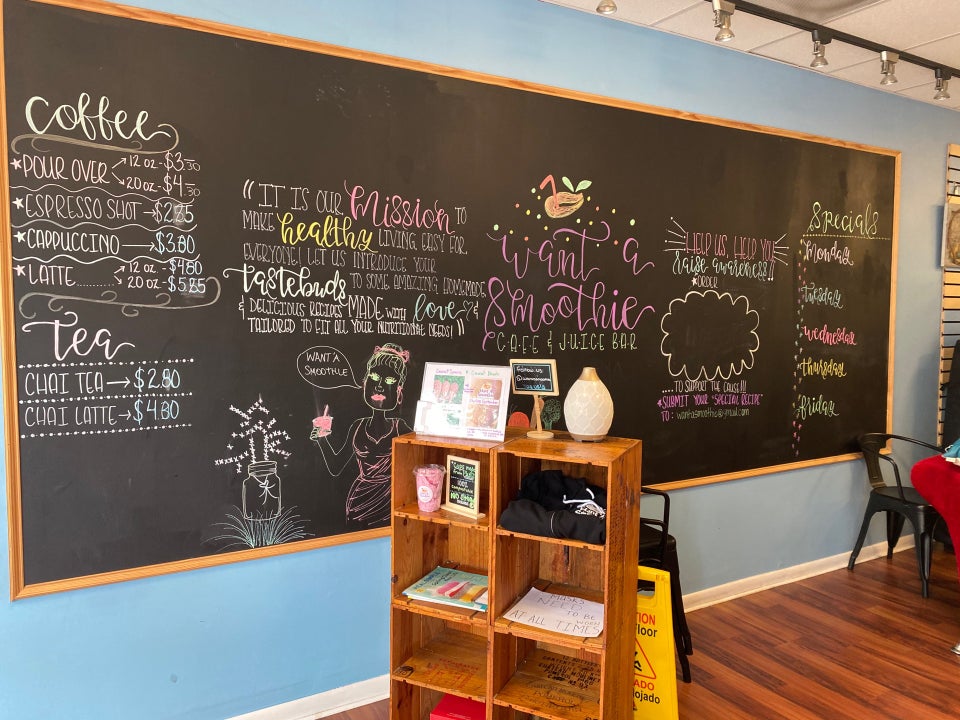 Coffee
★ POUR OVER 12 oz - $3.30
20 oz - $4.30
★ ESPRESSO SHOT → $2.85
★ CAPPUCCINO → $3.80
★ LATTE......... 12 oz - $4.80
20 oz - $5.85
Tea
CHAI TEA → $2.80
CHAI LATTE → $4.80
"IT IS OUR Mission TO
MAKE healthy LIVING, EASY FOR
EVERYONE! LET US INTRODUCE YOUR
tastebuds TO SOME AMAZING, HOMEMADE,
& DELICIOUS RECIPES MADE WITH love &
TAILORED TO FIT ALL YOUR NUTRITIONAL NEEDS!"
WANT A
SMOOTHIE
want a
Smoothie
CAFE & JUICE BAR
HELP US, HELP YOU
Raise awareness!!
*ORDER
....TO SUPPORT THE CAUSE!!!
*SUBMIT YOUR "SPECIAL RECIPE"
TO: wantasmoothie@gmail.com
Specials
Monday
Tuesday
wednesday
thursday
friday
Follow us
MASKS
NEED TO BE
WORN
AT ALL TIMES
floor